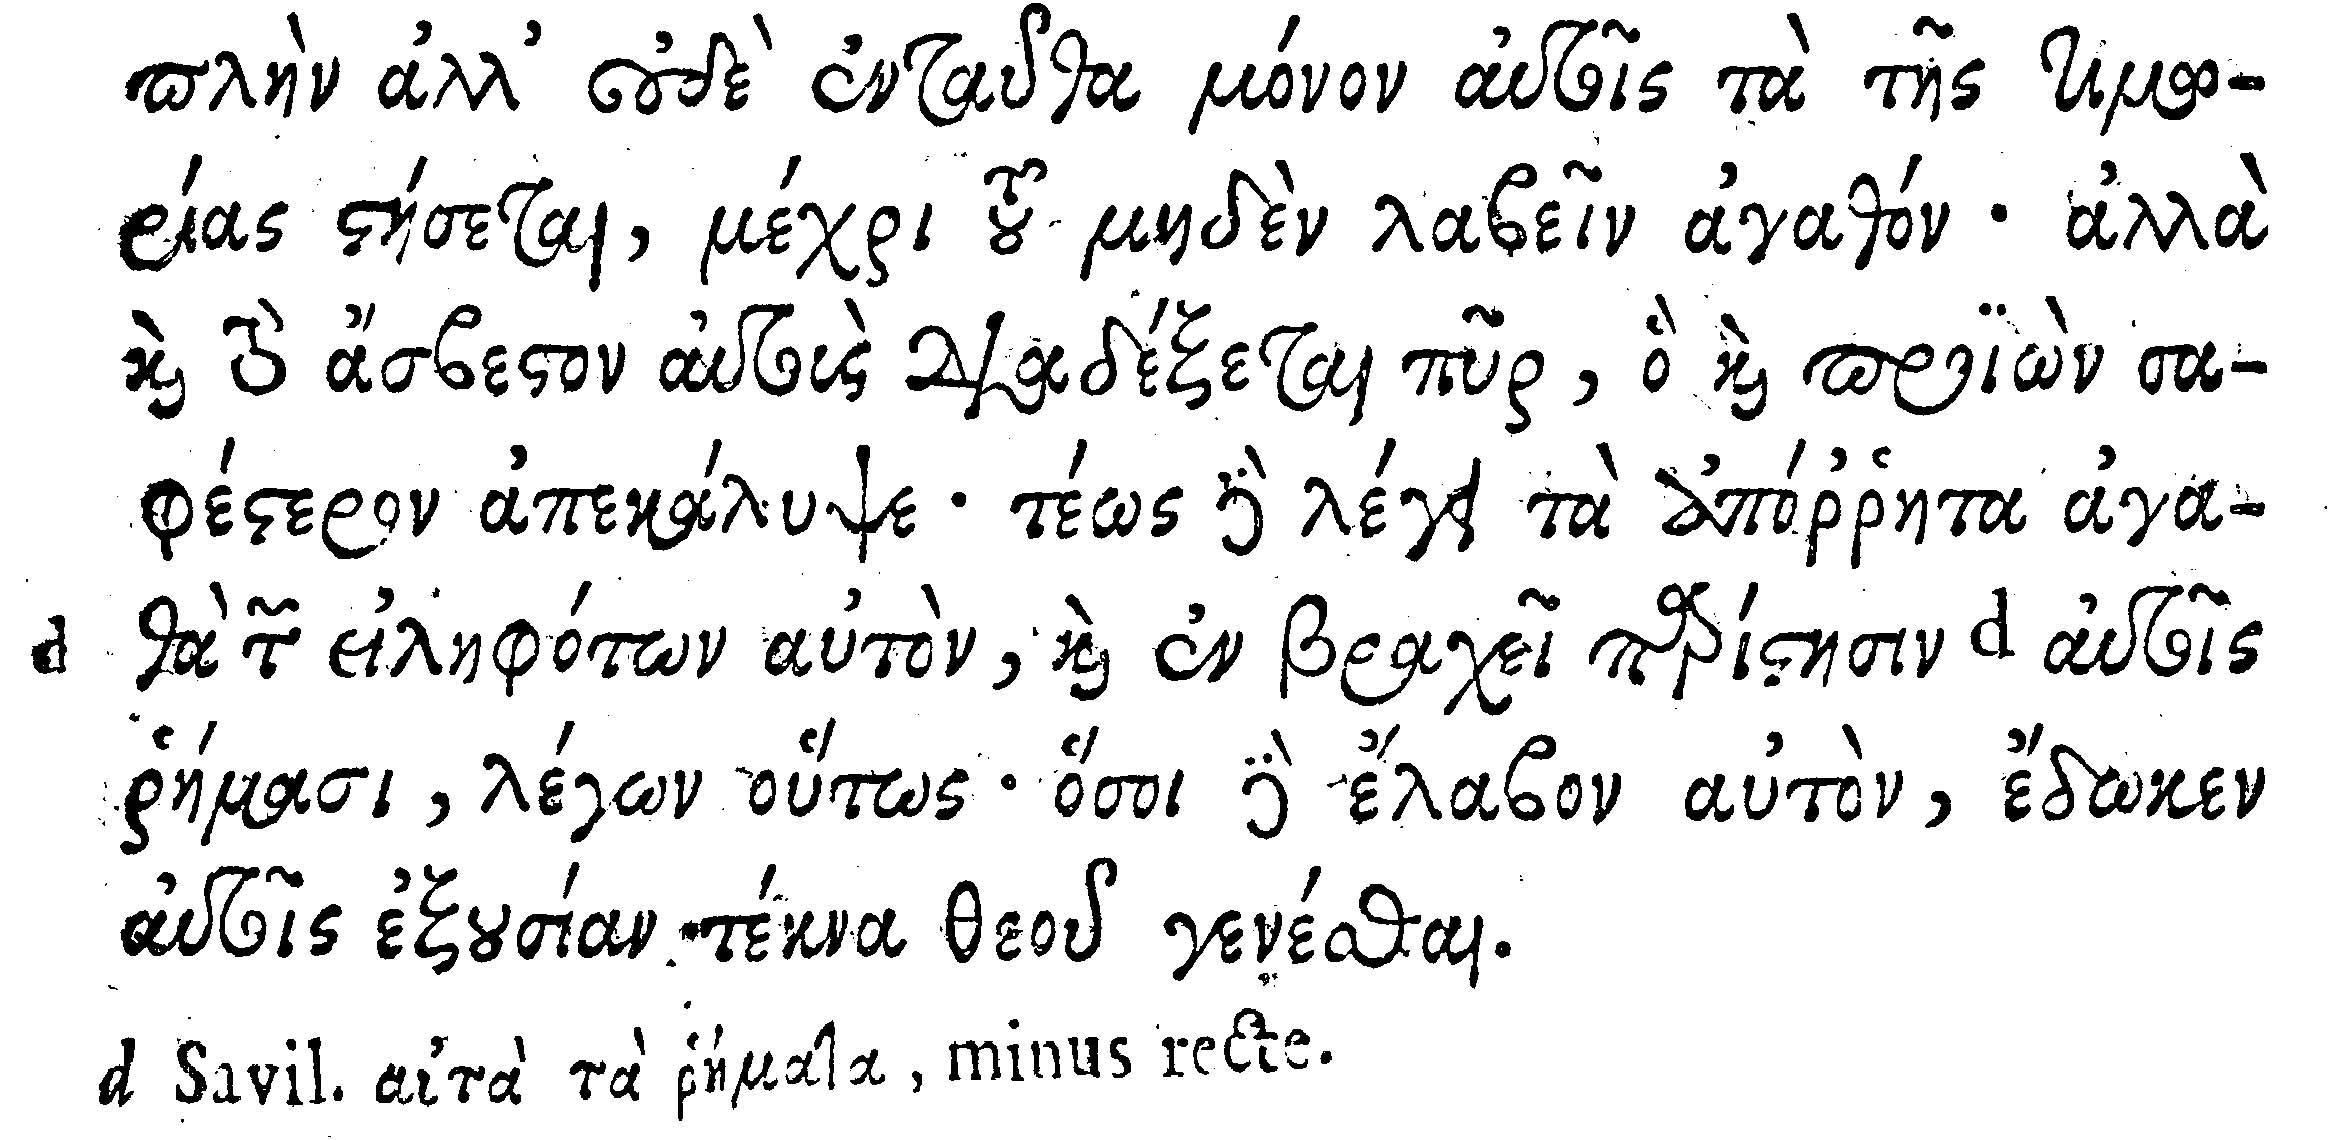 πλὴν ἀλλ’ οὐδὲ ἐνταῦθα μόνον αὐτοῖς τὰ τῆς τιμω-
ρίας στήσεται, μέχρι τοῦ μηδὲν λαβεῖν ἀγαθόν· ἀλλὰ
καὶ τὸ ἄσβεστον αὐτοὺς διαδέξεται πῦρ, ὃ καὶ προϊὼν σα-
φέστερον ἀπεκάλυψε· τέως δὲ λέγει τὰ ἀπόῤῥητα ἀγα-
d θὰ τῶν εἰληφότων αὐτὸν, καὶ ἐν βραχεῖ παρίστησιν d αὐτοῖς
ῥήμασι, λέγων οὕτως· ὅσοι δὲ ἔλαβον αὐτὸν, ἔδωκεν
αὐτοῖς ἐξουσίαν τέκνα θεοῦ γενέσθαι.
d Savil. αὐτὰ τὰ ῥήματα, minus recte.